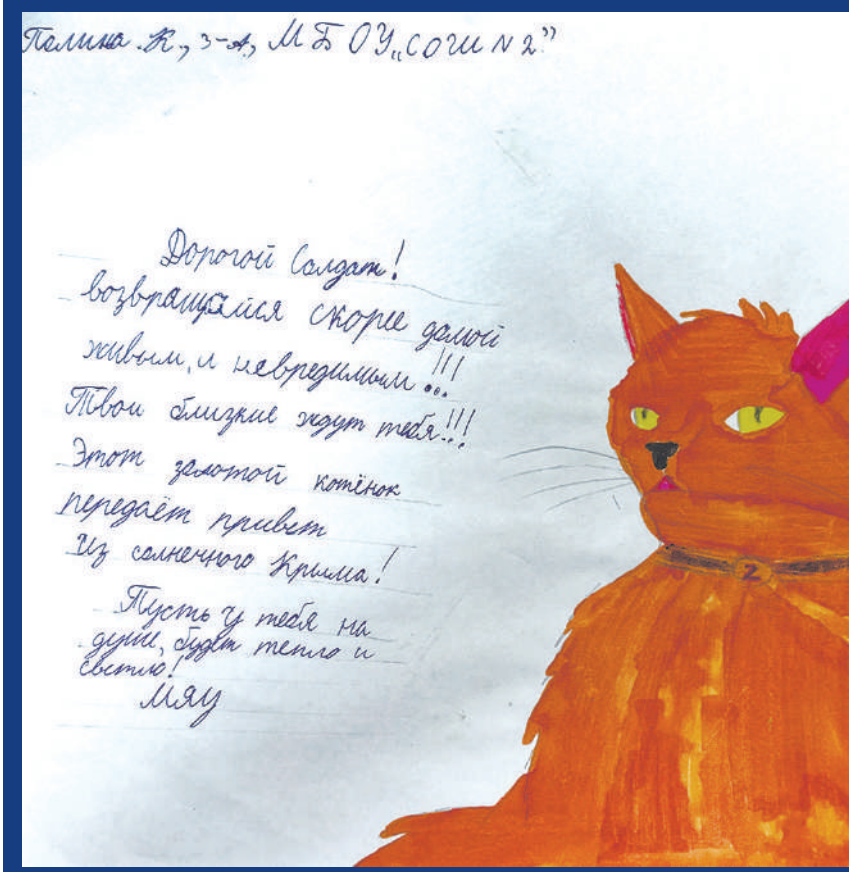 Полина К., 3-А, МБОУ „СОШ N 2”
Дорогой Солдат!
возвращайся скорее домой
живым, и невредимым!!!
Твои близкие ждут тебя!!!
Этот золотой котёнок
передаёт привет
Из солнечного Крыма!
Пусть у тебя на
душе, будет тепло и
светло!
МЯУ
Z